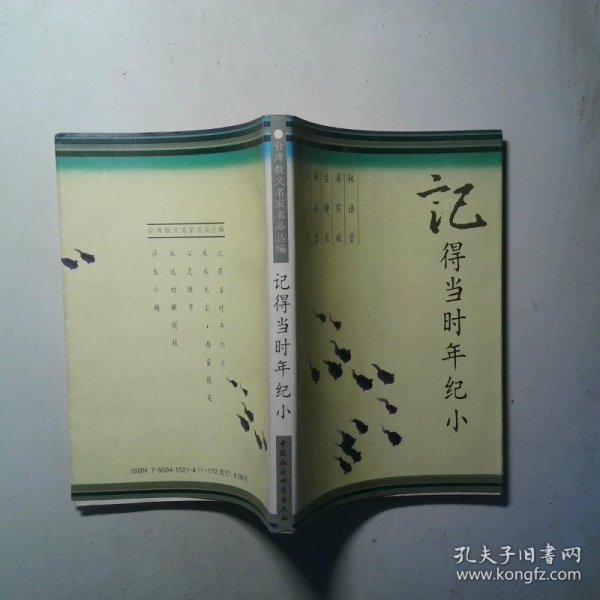 记得当时年纪小
林语堂
梁实秋
台静农
台湾散文名家名品丛编
记得当时年纪小
中国社会科学出版社
台湾散文名家名品丛编
记得当时年纪小
秋水无尘·西窗随笔
心灵散步
永远的橄榄枝
浮生小趣
ISBN 7-5004-1521-4/I·172 定价:8.90元
孔夫子旧书网
www.kongfz.com